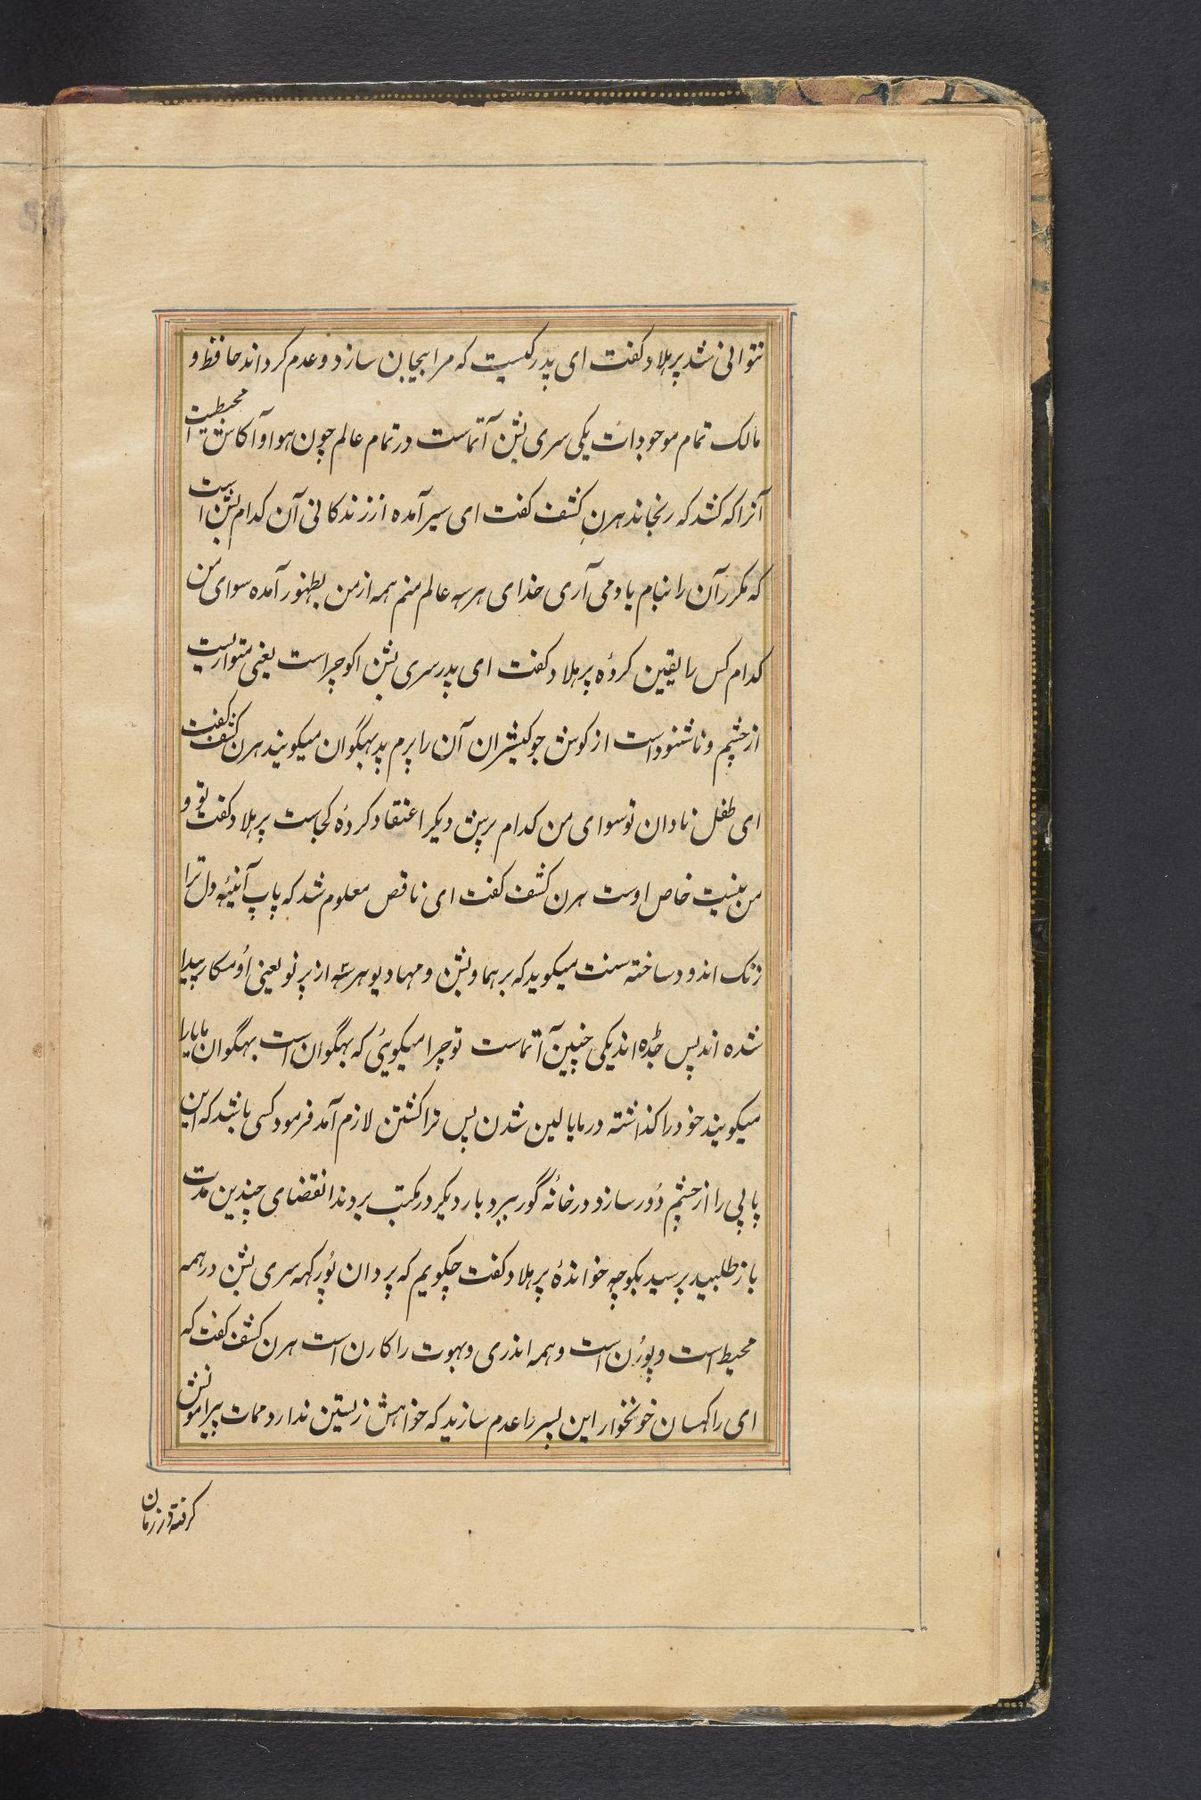 نتوانی شد پرهلاد کفت ای پدر کیست که مرا بیجان سازد و عدم کرداند حافظ و
مالک تمام موجودات یکی سری بشن آتماست در تمام عالم چون هوا و آکاش محیطیت
آنرا که کشد که رنجاند هرن کشف کفت ای سیر آمده از زندکانی آن کدام بشن است
که مکرر آن را بنام یاد می آری خدای هر سه عالم منم همه از من بظهور آمده سوای من
کدام کس را یقین کردهٔ پرهلاد کفت ای پدر سری بشن اکوچر است یعنی متواریست
از چشم و ناشنود است از کوش جوکیشران آن را پرم پد بهگوان میکویند هرن کشف کفت
ای طفل نادان تو سوای من کدام بشن دیکر اعتقاد کردهٔ کجاست پرهلاد کفت تو و
من بنیت خاص اوست هرن کشف کفت ای ناقص معلوم شد که پاپ آئینهٔ دل ترا
زنک اندود ساخته ست میکوید که برهما و بشن و مهادیو هر سه از پرنو یعنی اومکار پیدا
شده اند پس جده اند یکی چنین آتماست تو چرا میکوئی که بهگوان است بهگوان مایا را
میکویند خود را کذاشته در مایا لین شدن پس ترا کشتن لازم آمد فرمود کسی باشد که این
پاپی را از چشم دور سازد در خانهٔ گور ببرد بار دیکر در مکتب بردند انقضای چندین مدت
باز طلبید پرسید بکو چه خواندهٔ پرهلاد کفت چکویم که پردان پورکهه سری بشن در همه
محیط است و پورن است و همه اندری و بهوت را کارن است هرن کشف کفت که
ای راکهسان خونخوار این پسر را عدم سازید که خواهش زیستن ندارد ممات پیرامونش
کرفته در زمان